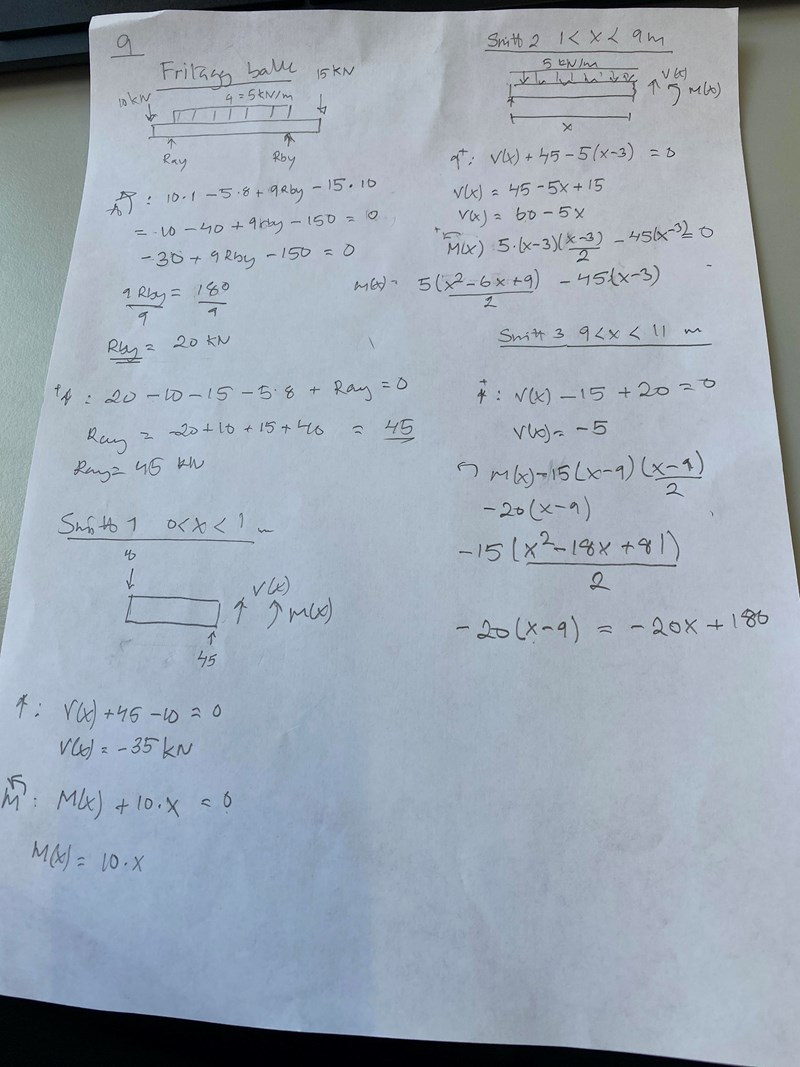 9
Fritagg balk
10 kN
15 kN
q = 5 kN/m
Ray
Rby
A: 10·1 - 5·8 + 9Rby - 15·10
= 10 - 40 + 9Rby - 150 = 0
-30 + 9Rby - 150 = 0
9Rby/9 = 180/9
Rby = 20 kN
+↑: 20 - 10 - 15 - 5·8 + Ray = 0
Ray = -20 + 10 + 15 + 40 = 45
Ray = 45 kN
Snitt 1 0 < x < 1 m
10
V(x)
M(x)
45
↑: V(x) + 45 - 10 = 0
V(x) = -35 kN
M: M(x) + 10·x = 0
M(x) = 10·x
Snitt 2 1 < x < 9 m
5 kN/m
V(x)
M(x)
x
↑+: V(x) + 45 - 5(x-3) = 0
V(x) = 45 - 5x + 15
V(x) = 60 - 5x
M(x) 5·(x-3)(x-3)/2 - 45(x-3) = 0
M(x) = 5(x² - 6x + 9)/2 - 45·(x-3)
Snitt 3 9 < x < 11 m
+↑: V(x) - 15 + 20 = 0
V(x) = -5
M(x) - 15(x-9)(x-9)/2
-20(x-9)
-15(x² - 18x + 81)/2
-20(x-9) = -20x + 180